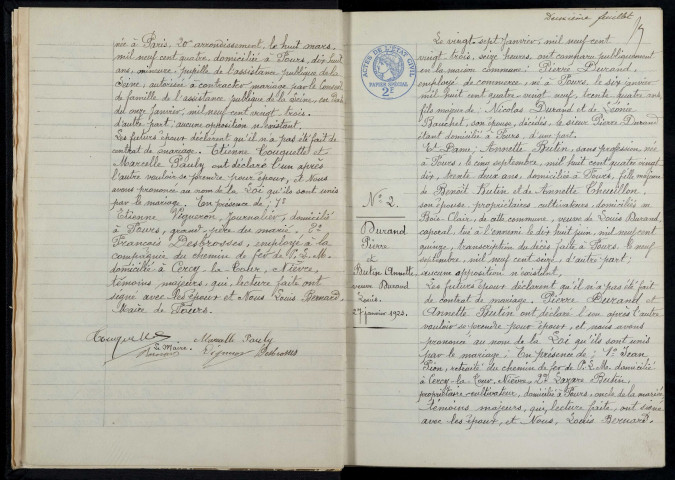 née à Paris, 20e arrondissement, le huit mars,
mil neuf cent quatre, domiciliée à Fours, dix huit
ans, mineure, pupille de l'assistance publique de la
Seine, autorisée à contracter mariage par le Conseil
de famille de l'assistance publique de la Seine, en date
du onze janvier, mil neuf cent vingt trois.
d'autre part; aucune opposition n'existant.
Les futurs époux déclarent qu'il n'a pas été fait de
contrat de mariage. Etienne Couquette et
Marcelle Pauly ont déclaré l'un après
l'autre vouloir se prendre pour époux, et Nous
avons prononcé au nom de la Loi qu'ils sont unis
par le mariage. En présence de: 1º
Etienne Vigneron, journalier, domicilié
à Fours, grand-père du marié. 2º
François Desbrosses, employé à la
compagnie du chemin de fer de P.L.M.
domicilié à Cercy-la-Tour, Nièvre,
témoins majeurs, qui, lecture faite ont
signé avec les époux et Nous Louis Bernard,
Maire de Fours.
Marcelle Pauly
Le Maire.
Deuxième feuillet
ACTES DE L'ÉTAT CIVIL
PAPIER SPÉCIAL
2F
Nº 2.
Durand
Pierre
et
Butin Annette,
veuve Durand
Louis.
27 janvier 1923.
Le vingt-sept Janvier, mil neuf cent
vingt trois, seize heures, ont comparu publiquement
en la maison commune: Pierre Durand,
employé de commerce, né à Fours, le six janvier
mil huit cent quatre vingt neuf, trente quatre ans,
fils majeur de: Nicolas Durand et de Léonie
Bauchet, son épouse, décédés, le sieur Pierre Durand
étant domicilié à Fours, d'une part.
Et Dame, Annette Butin, sans profession, née
à Fours, le cinq septembre, mil huit cent quatre vingt
dix, trente deux ans, domiciliée à Fours, fille majeure
de Benoît Butin et de Annette
son épouse, propriétaires cultivateurs, domiciliés au
Bois-Clair, de cette commune, veuve de Louis Durand,
caporal, tué à l'ennemi le dix huit juin, mil neuf cent
quinze, transcription du décès faite à Fours le neuf
septembre, mil neuf cent seize, d'autre part;
aucune opposition n'existant,
Les futurs époux déclarent qu'il n'a pas été fait
de contrat de mariage, Pierre Durand et
Annette Butin ont déclaré l'un après l'autre
vouloir se prendre pour époux, et nous avons
prononcé au nom de la Loi qu'ils sont unis
par le mariage: En présence de; 1º Jean
Pion, retraité du chemin de fer de P.L.M. domicilié
à Cercy-la-Tour, Nièvre, 2º Lazare Butin,
propriétaire-cultivateur, domicilié à Fours, oncle de la mariée,
témoins majeurs, qui, lecture faite, ont signé
avec les époux, et Nous, Louis Bernard.